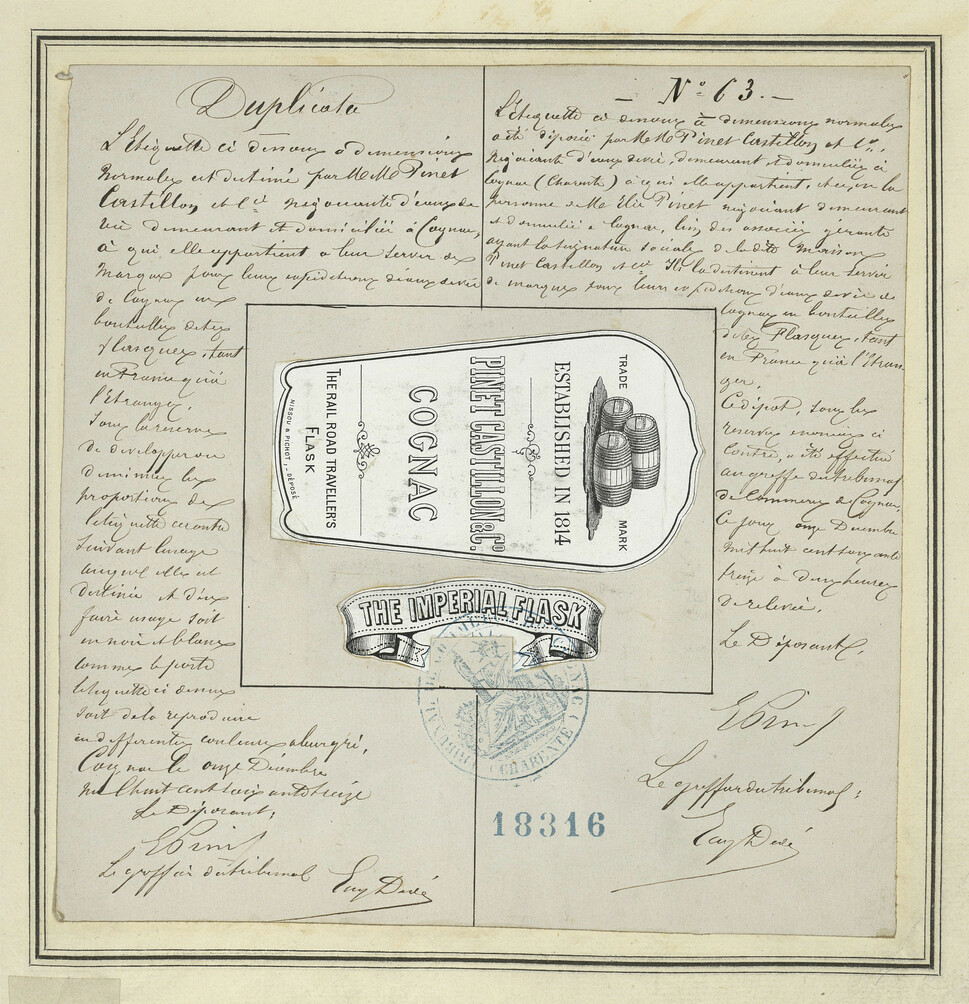 Duplicata
L'Etiquette ci dessous a dimensions
normales est destinée par M.M. Pinet
Castillon et Cie négociants d'eaux de
vie demeurant et domiciliés à Cognac,
à qui elle appartient a leur servir de
marque pour leurs expéditions d'eaux de vie
de Cognac en
bouteilles dites
flasques, tant
en France qu'à
l'Etranger,
Sous la réserve
de développer ou
diminuer les
proportions de
l'étiquette ci contre
suivant l'usage
auquel elle est
destinée et d'en
faire usage soit
en noir et blanc
comme le porte
l'étiquette ci dessus
soit de la reproduire
en différentes couleurs a leur gré,
Cognac le onze Décembre
mil huit cent soixante treize
Le Déposant,
EPinet
Le greffier du tribunal
Eug Dedé
N° 63.
L'Etiquette ci dessous à dimensions normales
a été déposée par M.M. Pinet Castillon et Cie,
négociants d'eaux de vie, demeurant et domiciliés à
Cognac (Charente) à qui elle appartient, et ce, en la
personne de Mr Elie Pinet négociant demeurant
et domicilié a Cognac, l'un des associés gérants
ayant la signature sociale de la dite maison
Pinet Castillon et Cie. Ils la destinent à leur servir
de marque pour leurs expéditions d'eaux de vie de
Cognac en bouteilles
dites Flasques, tant
en France qu'à l'Etran-
ger.
Ce dépôt, sous les
réserves énoncées ci
contre, a été effectué
au greffe du tribunal
de Commerce de Cognac,
Ce jour onze Décembre
mil huit cent soixante
treize à deux heures
de relevée.
Le Déposant,
EPinet
Le greffier du tribunal,
Eug Dedé
TRADE MARK
ESTABLISHED IN 1814
PINET CASTILLON & Co.
COGNAC
THE RAIL ROAD TRAVELER'S
FLASK
NISSOU & PICHOT, - DÉPOSÉ
THE IMPERIAL FLASK
CHARENTE
18316